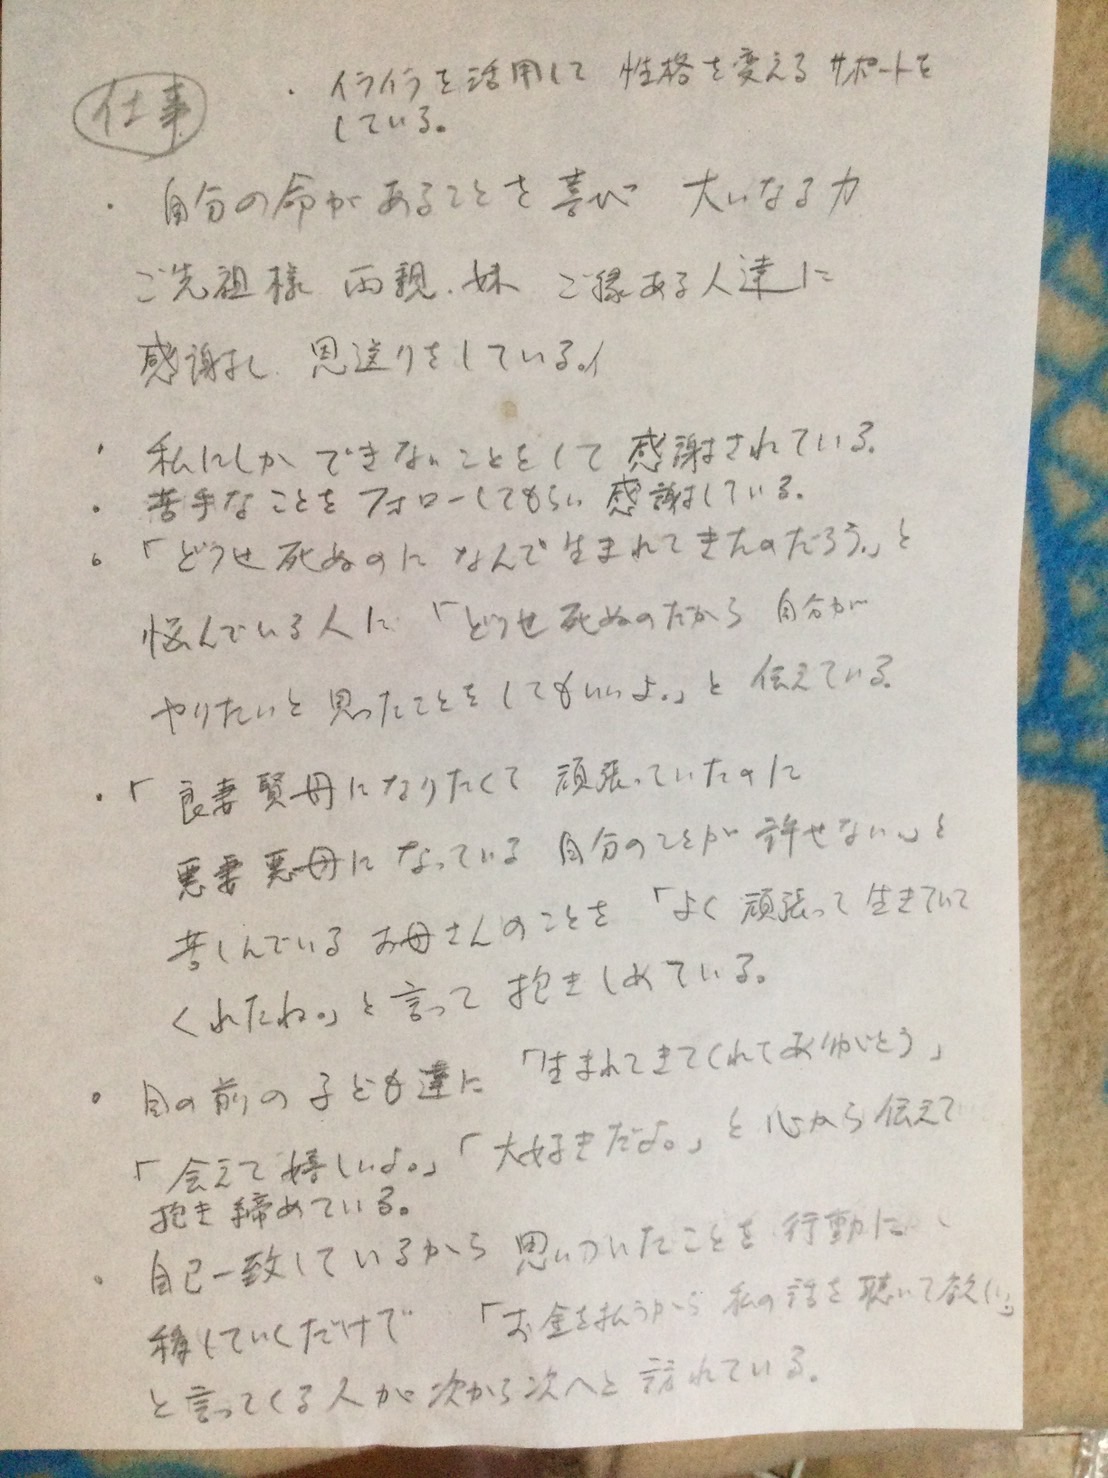 仕事
・イライラを活用して 性格を変えるサポートを
している。
・自分の命があることを喜び 大いなる力
ご先祖様 両親、妹 ご縁ある人達に
感謝し 恩送りをしている。
・私にしかできないことをして 感謝されている。
・苦手なことをフォローしてもらい 感謝している。
・「どうせ死ぬのに なんで生まれてきたのだろう。」と
悩んでいる人に 「どうせ死ぬのだから 自分が
やりたいと思ったことをしてもいいよ。」と 伝えている。
・「良妻賢母になりたくて 頑張っていたのに
悪妻悪母になっている 自分のことが 許せない。」と
苦しんでいる お母さんのことを 「よく頑張って生きていて
くれたね。」と言って 抱きしめている。
・目の前の子ども達に 「生まれてきてくれてありがとう」
「会えて嬉しいよ。」「大好きだよ。」と 心から伝えて
抱き締めている。
・自己一致しているから 思いついたことを 行動に
移していくだけで 「お金を払うから 私の話を聴いて欲しい。」
と言ってくる人が 次から次へと 訪れている。